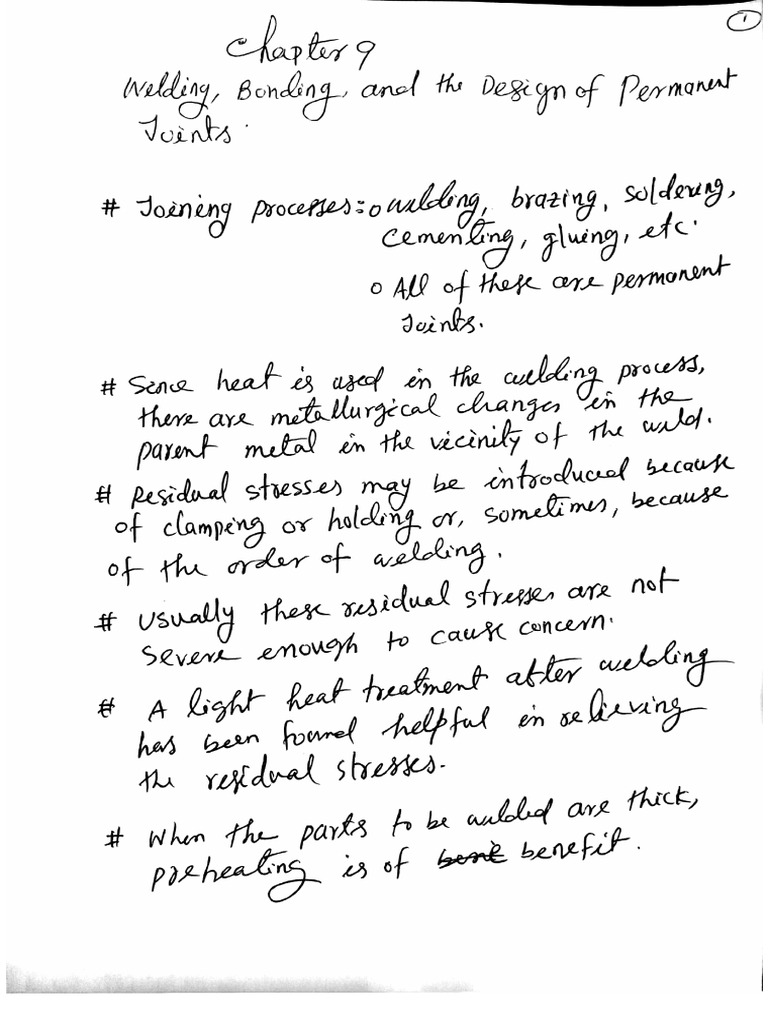 1
Chapter 9
Welding, Bonding, and the Design of Permanent
Joints.
# Joining processes: o welding, brazing, soldering,
cementing, gluing, etc.
o All of these are permanent
Joints.
# Since heat is used in the welding process,
there are metallurgical changes in the
parent metal in the vicinity of the weld.
# Residual stresses may be introduced because
of clamping or holding or, sometimes, because
of the order of welding.
# Usually these residual stresses are not
severe enough to cause concern.
# A light heat treatment after welding
has been found helpful in relieving
the residual stresses.
# When the parts to be welded are thick,
preheating is of benefit.